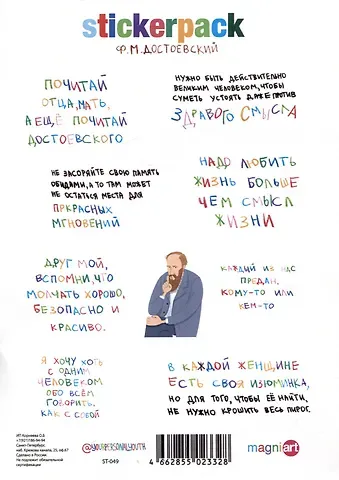 stickerpack
Ф.М.ДОСТОЕВСКИЙ
ПОЧИТАЙ
ОТЦА, МАТЬ,
А ЕЩЁ ПОЧИТАЙ
ДОСТОЕВСКОГО
НУЖНО БЫТЬ ДЕЙСТВИТЕЛЬНО
ВЕЛИКИМ ЧЕЛОВЕКОМ, ЧТОБЫ
СУМЕТЬ УСТОЯТЬ ДАЖЕ ПРОТИВ
ЗДРАВОГО СМЫСЛА
НЕ ЗАСОРЯЙТЕ СВОЮ ПАМЯТЬ
ОБИДАМИ, А ТО ТАМ МОЖЕТ
НЕ ОСТАТЬСЯ МЕСТА ДЛЯ
ПРКРАСНЫХ
МГНОВЕНИЙ
НАДО ЛЮБИТЬ
ЖИЗНЬ БОЛЬШЕ
ЧЕМ СМЫСЛ
ЖИЗНИ
ДРУГ МОЙ,
ВСПОМНИ, ЧТО
МОЛЧАТЬ ХОРОШО,
БЕЗОПАСНО И
КРАСИВО.
КАЖДЫЙ ИЗ НАС
ПРЕДАН.
КОМУ-ТО ИЛИ
КЕМ-ТО
Я ХОЧУ ХОТЬ
С ОДНИМ
ЧЕЛОВЕКОМ
ОБО ВСЁМ
ГОВОРИТЬ,
КАК С СОБОЙ
В КАЖДОЙ ЖЕНЩИНЕ
ЕСТЬ СВОЯ ИЗЮМИНКА,
НО ДЛЯ ТОГО, ЧТОБЫ ЕЁ НАЙТИ,
НЕ НУЖНО КРОШИТЬ ВЕСЬ ПИРОГ.
ИП Корнеева О.Б.
+7(921)186-94-94
Санкт-Петербург,
наб. Крюкова канала, 25, оф.67
Сделано в России.
Не подлежит обязательной
сертификации
@YOURPERSONALYOUTH
ST-049
4 662855 023328
magniart